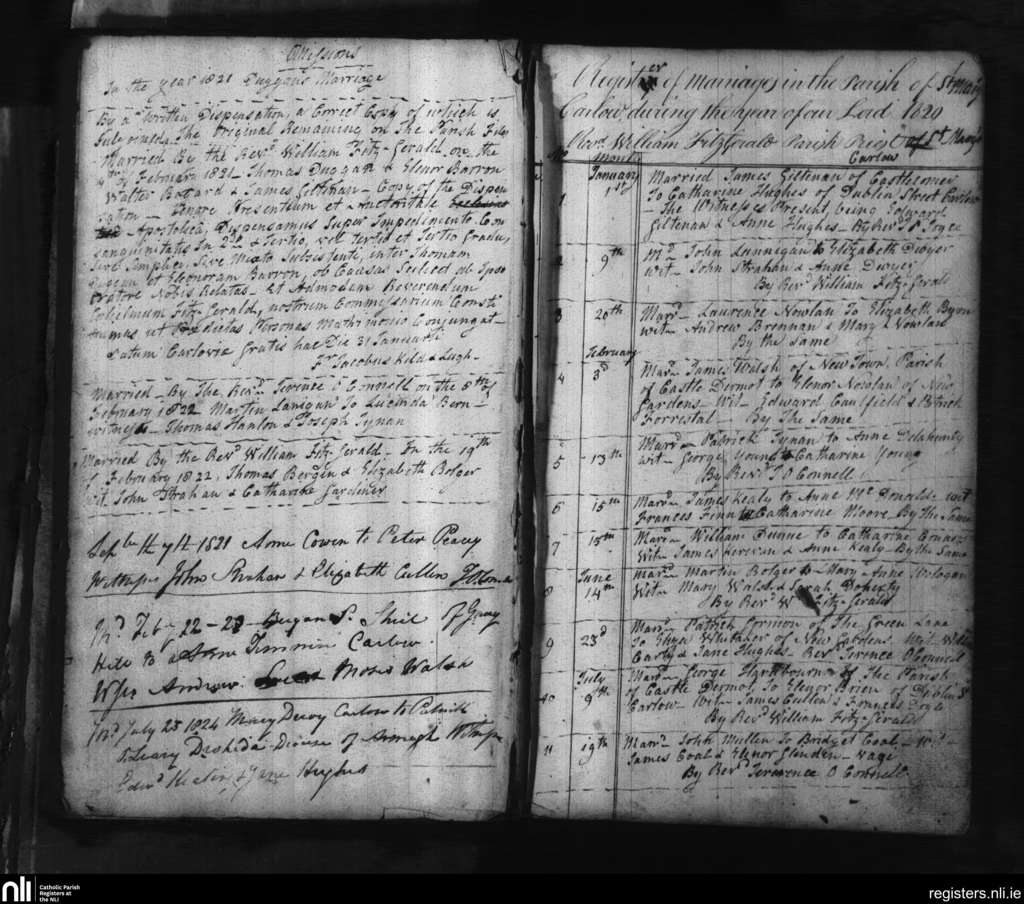 Omissions
In the year 1821 Duggan's Marriage
By a Written Dispensation, a Correct Copy of which is
Subjoined, The Original Remaining on The Parish File
Married By the Revd. William Fitz-Gerald, on the
of February 1821 Thomas Duggan & Elenor Barron
Walter Batard & James Giltenan - Copy of the Dispen
sation - Tenore Presentium et Auctoritate
Apostolica, Dispensamus Super Impedimento Con
sanguinitatis In 2do & Tertio, vel Tertio et Tertio Gradu,
Sive Simplici, Sive Mixto Subsistente, inter Thomam
Dugan et Elenoram Barron, ob Causas Scilicet ab Ipso
Oratore Nobis Relatas - Et Admodum Reverendum
Guliclmum Fitz-Gerald, nostrum Commissarium Consti
tuimus ut Predictas Personas Matrimonio Conjungat -
Datum Carlovie Gratis hac Die 31 Januarii
Fr Jacobus Kild & Lugh -
Married - By The Revd. Terence O Connell on the 8th of
February 1822 Martin Lanigan To Lucinda Bern -
witness - Thomas Hanlon & Joseph Tynan
Married By the Revd William Fitz Gerald - On the 19th
of February 1822, Thomas Bergin & Elizabeth Bolger
wit. John Strahan & Catharine Gardener
1821 Cowen to Peter
Witnesses John Strahan & Elizabeth Cullen
Md. Feby 22 - 23 - of
to Timmin Carlow
Andrew Moses Walsh
Md July 25 1824 Mary Carlow to Patrick
O Leary Diocese of Armagh
Edwd & Jane Hughes
Register of Marriages in the Parish of St Mary's
Carlow, during the year of our Lord 1820
Revd. William FitzGerald Parish Priest of St. Mary's
Carlow
No Month
January
1 1st Married James Giltenan of Castlecomer
To Catharine Hughes of Dublin Street Carlow
- The Witnesses Present, being Edward
Giltenan & Anne Hughes - By Revd P Joyce
2 9th Md John Lunnigan to Elizabeth Dwyer
wit - John Strahan & Anne Dwyer
By Revd William Fitz-Gerald
3 20th Mard - Laurence Nowlan To Elizabeth Byrn
wit - Andrew Brennan & Mary Nowlan
By the Same
February
4 3d Mard James Walsh of New Town, Parish
of Castle Dermot to Elenor Nowlan of New
Gardens - Wit - Edward Caulfield & Patrick
Forristal - By The Same
5 13th Mard - Patrick Tynan to Anne Delahunty
wit - George Young & Catharine Young
By Revd T O Connell
6 15th Mard - James Kealy to Anne McDonald - wit
Frances Finn & Catharine Moore - By the Same
7 15th Mard - William Dunne to Catharine
Wit - James Kerevan & Anne Kealy - By the Same
June
8 14th Mard Martin Bolger to Mary Anne
Wit - Mary Walsh & Sarah Doherty
By Revd W Fitz-Gerald
9 23d Mard - Patrick Cormon of The Green Lane
To Whitaker of New Gardens. Wit
& Jane Hughes - Revd Terence O Connell
July
10 9th Mard - George of The Parish
of Castle Dermot, To Elenor Brien of Dublin St
Carlow - Wit - James Cullen & Frances Doyle
By Revd William Fitz-Gerald
11 19th Mard - John Mullen To Bridget Coal - Wt
James Coal & Elenor
By Revd Terence O Connell
nli
Catholic Parish
Registers at
the NLI
registers.nli.ie